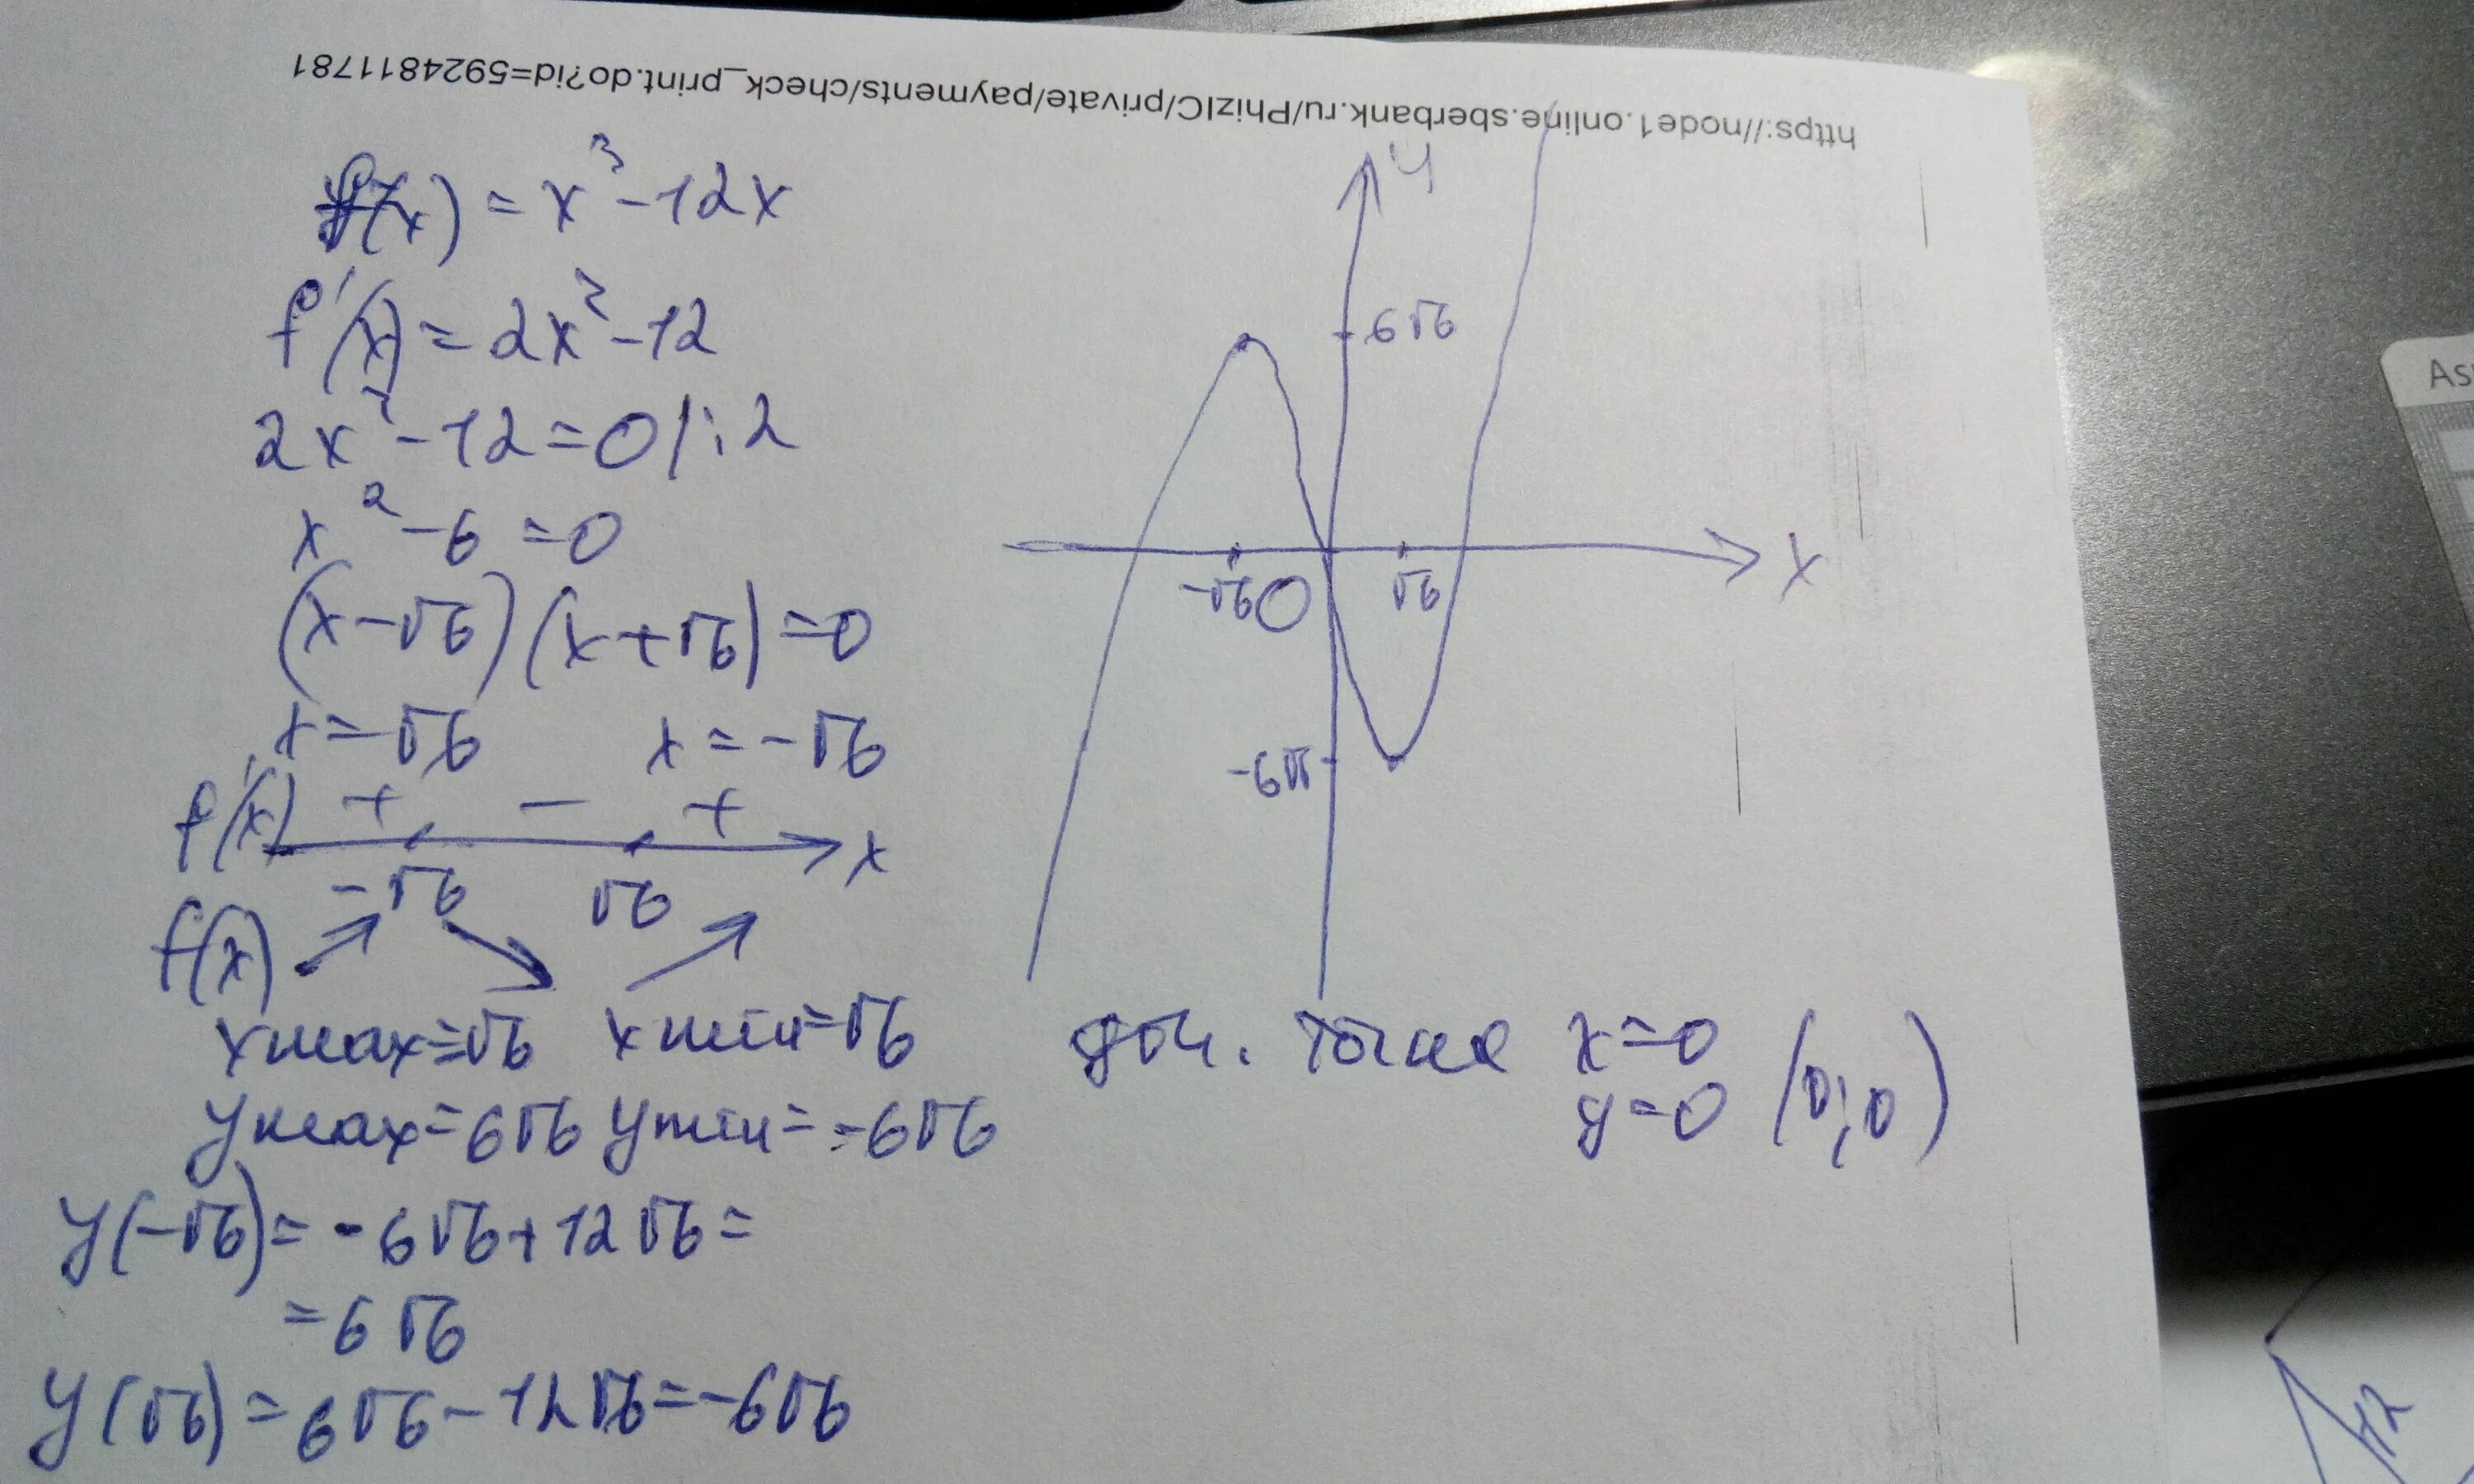 https://node1.online.sberbank.ru/PhizIC/private/payments/check_print.do?id=5924811781
f(x) = x³-12x
f'(x) = 2x²-12
2x²-12=0 |:2
x²-6=0
(x-√6)(x+√6)=0
x=√6 x=-√6
f'(x) + - + x
-√6 √6
f(x)
xmax=√6 xmin=√6
ymax=6√6 ymin=-6√6
y(-√6)=-6√6+12√6=
=6√6
y(√6)=6√6-12√6=-6√6
y
6√6
-√6 0 √6 x
-6√
доп. точка x=0
y=0 (0;0)
As
12